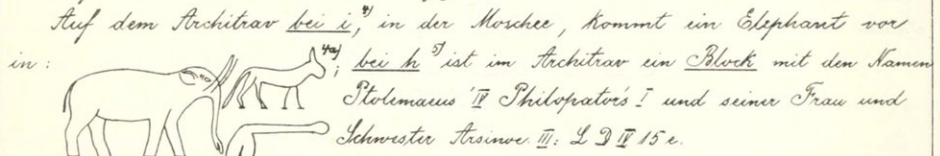 Auf dem Architrav bei i,⁴⁾ in der Moschee, kommt ein Elephant vor
in: ⁴ᵃ⁾; bei h ⁵⁾ ist im Architrav ein Block mit den Namen
Ptolemaeus' IV Philopator's I und seiner Frau und
Schwester Arsinoe III: L D IV 15 e.